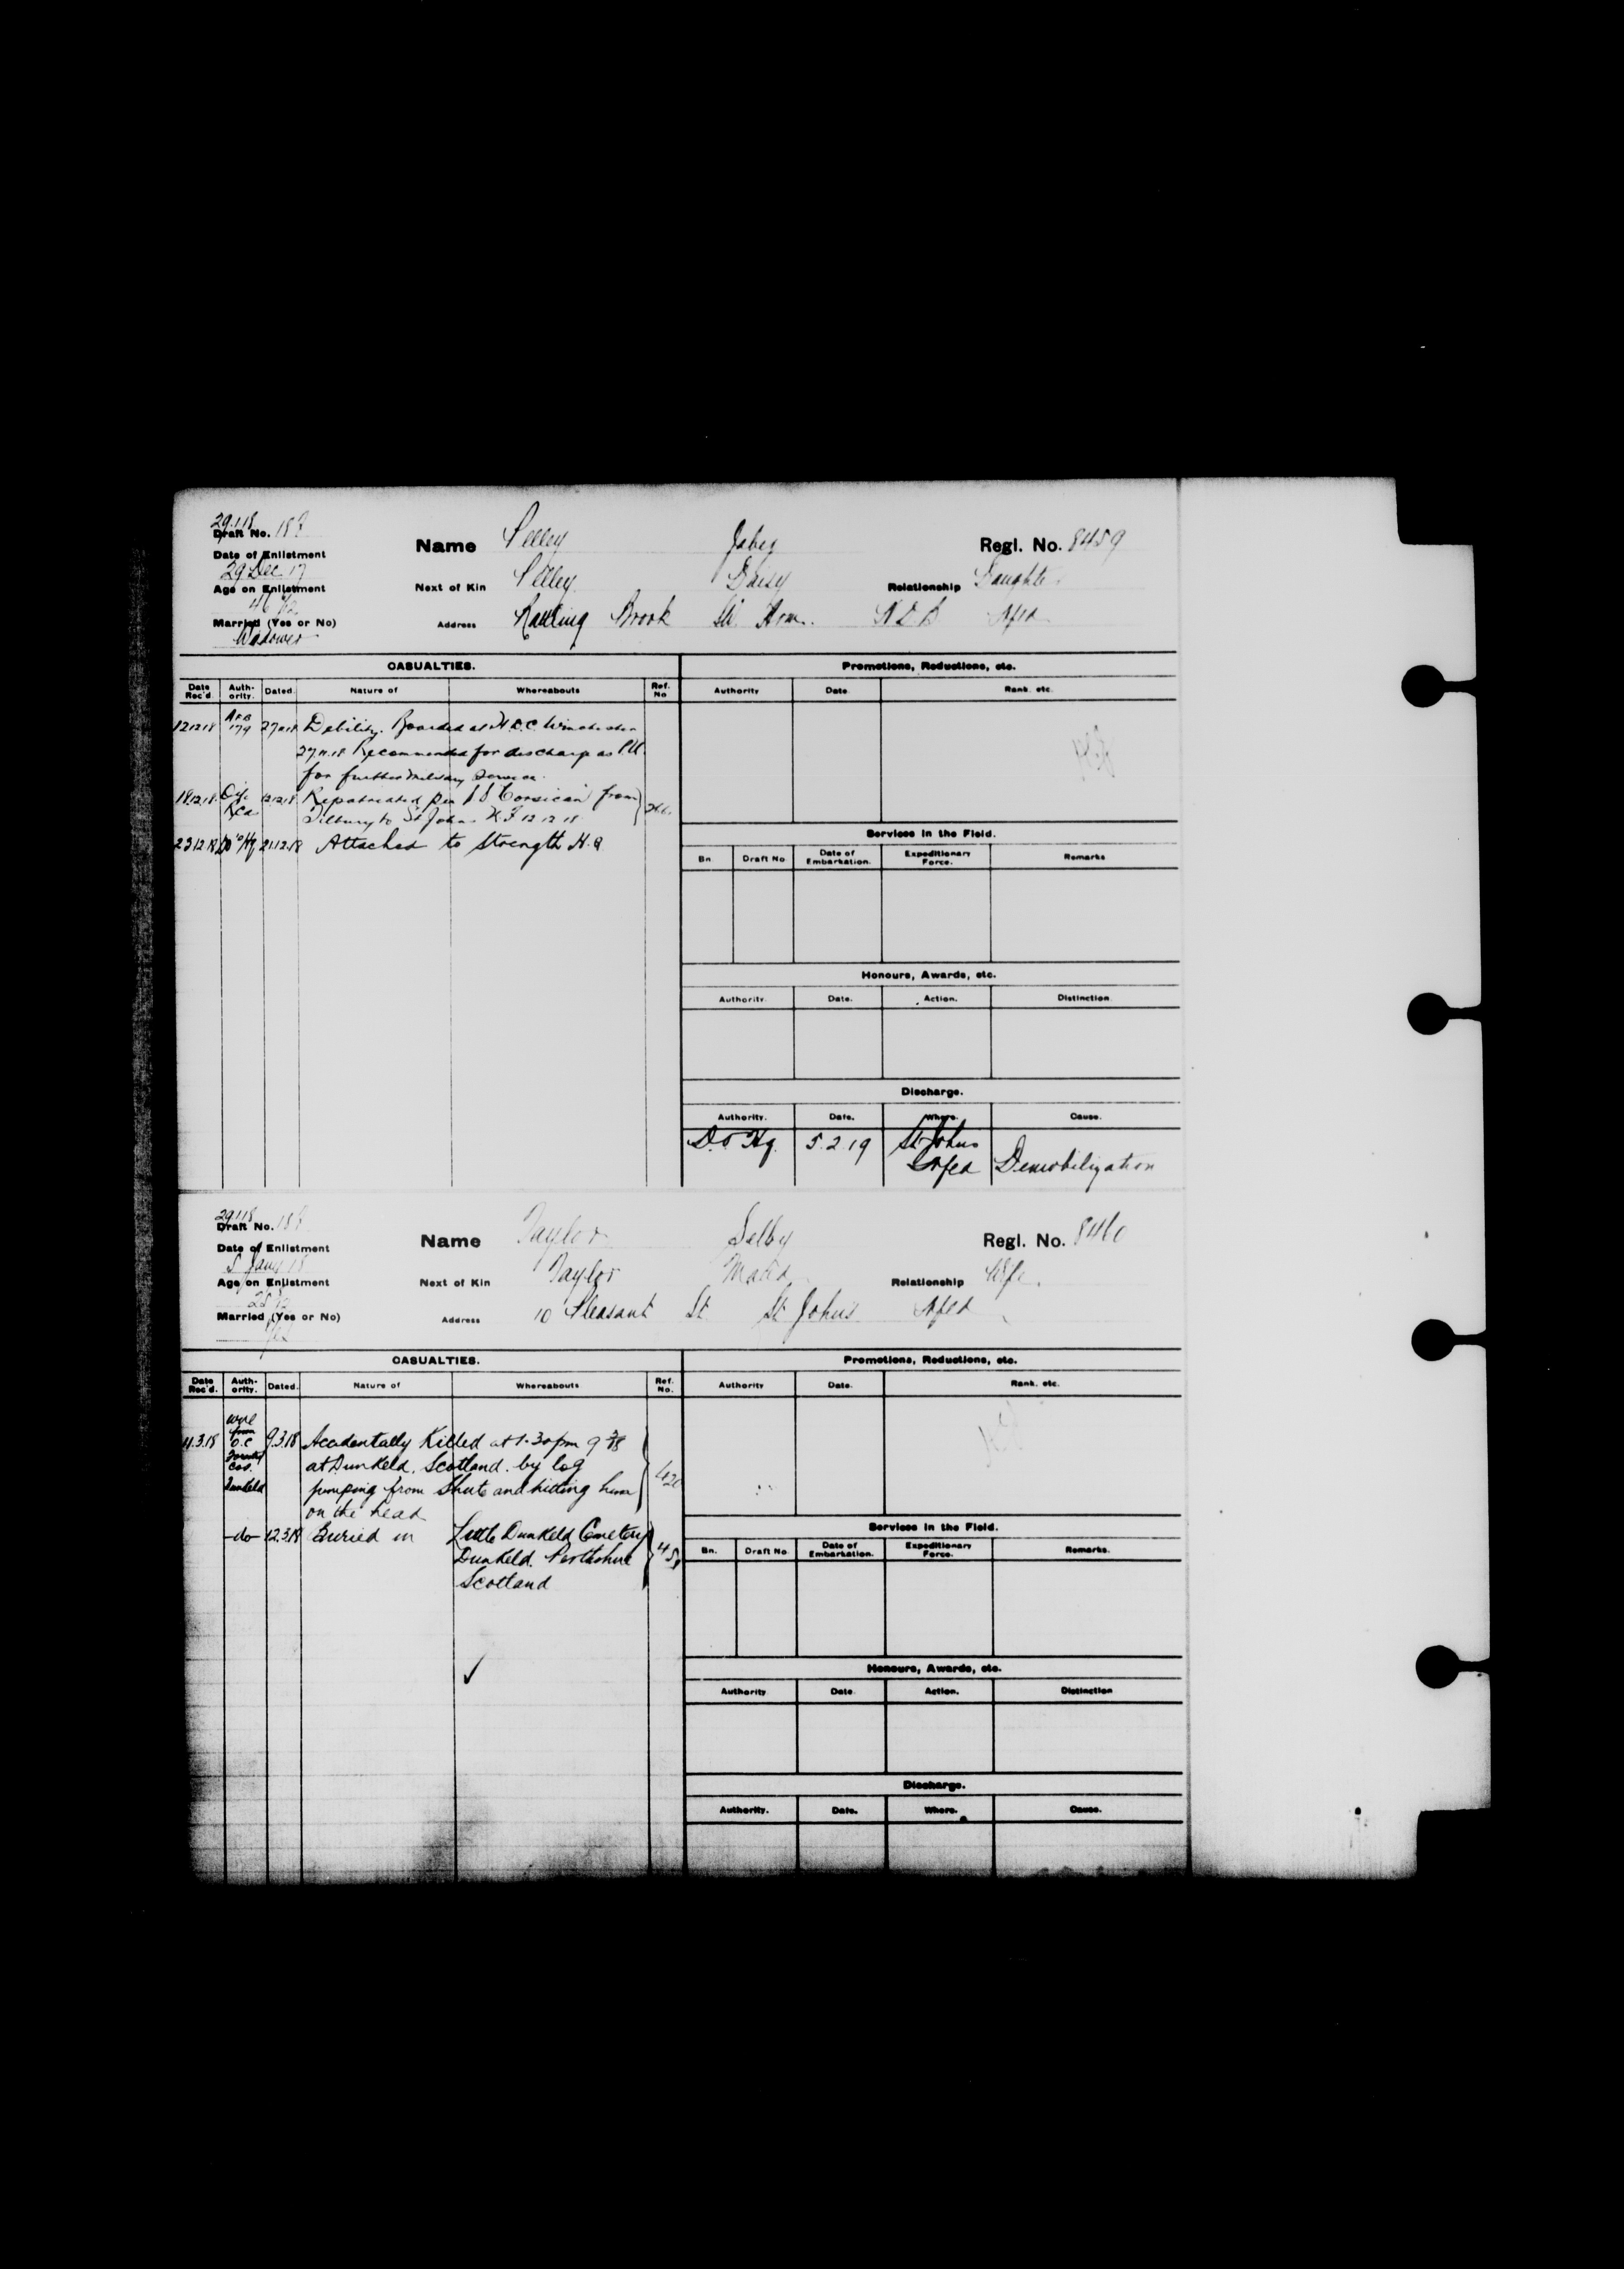 29.1.18
Draft No. 188
Date of Enlistment
29 Dec 17
Age on Enlistment
46
Married (Yes or No)
Widower
Name Pelley Jabez Regl. No. 8459
Next of Kin Pelley Daisy Relationship Daughter
Address Rattling Brook N.D.B Nfld
CASUALTIES.
Date Rec'd. Auth-ority. Dated. Nature of Whereabouts Ref. No
12.12.18 179 27.11.18 Debility. Boarded at H.D.C. Winchester
27.11.18 Recommended for discharge as P.U.
for further military service.
18.12.18 12.12.18 Repatriated per S.S Corsican from
Tilbury to St Johns N.F 12.12.18
23.12.18 D.O Hq 21.12.18 Attached to Strength H.Q
Promotions, Reductions, etc.
Authority Date Rank. etc.
Services in the Field.
Bn. Draft No Date of Embarkation. Expeditionary Force. Remarks
Honours, Awards, etc.
Authority. Date. Action. Distinction
Discharge.
Authority. Date. Where. Cause.
D.O Hq. 5.2.19 St Johns Nfld Demobilization
29.1.18
Draft No. 188
Date of Enlistment
5 Jany 18
Age on Enlistment
Married (Yes or No)
Yes
Name Taylor Selby Regl. No. 8460
Next of Kin Taylor Relationship Wife.
Address 10 Pleasant St St John's Nfld
CASUALTIES.
Date Rec'd. Auth-ority. Dated. Nature of Whereabouts Ref. No.
11.3.18 wire from O.C Forestry Cos. Dunkeld 9.3.18 Accidentally Killed at 1.30pm 9/3/18
at Dunkeld, Scotland. by log
jumping from Shute and hitting him
on the head
-do- 12.3.18 Buried in Little Dunkeld Cemetery
Dunkeld. Perthshire
Scotland
Promotions, Reductions, etc.
Authority Date. Rank. etc.
Services in the Field.
Bn. Draft No Date of Embarkation. Expeditionary Force. Remarks.
Honours, Awards, etc.
Authority Date. Action. Distinction
Discharge.
Authority. Date. Where. Cause.